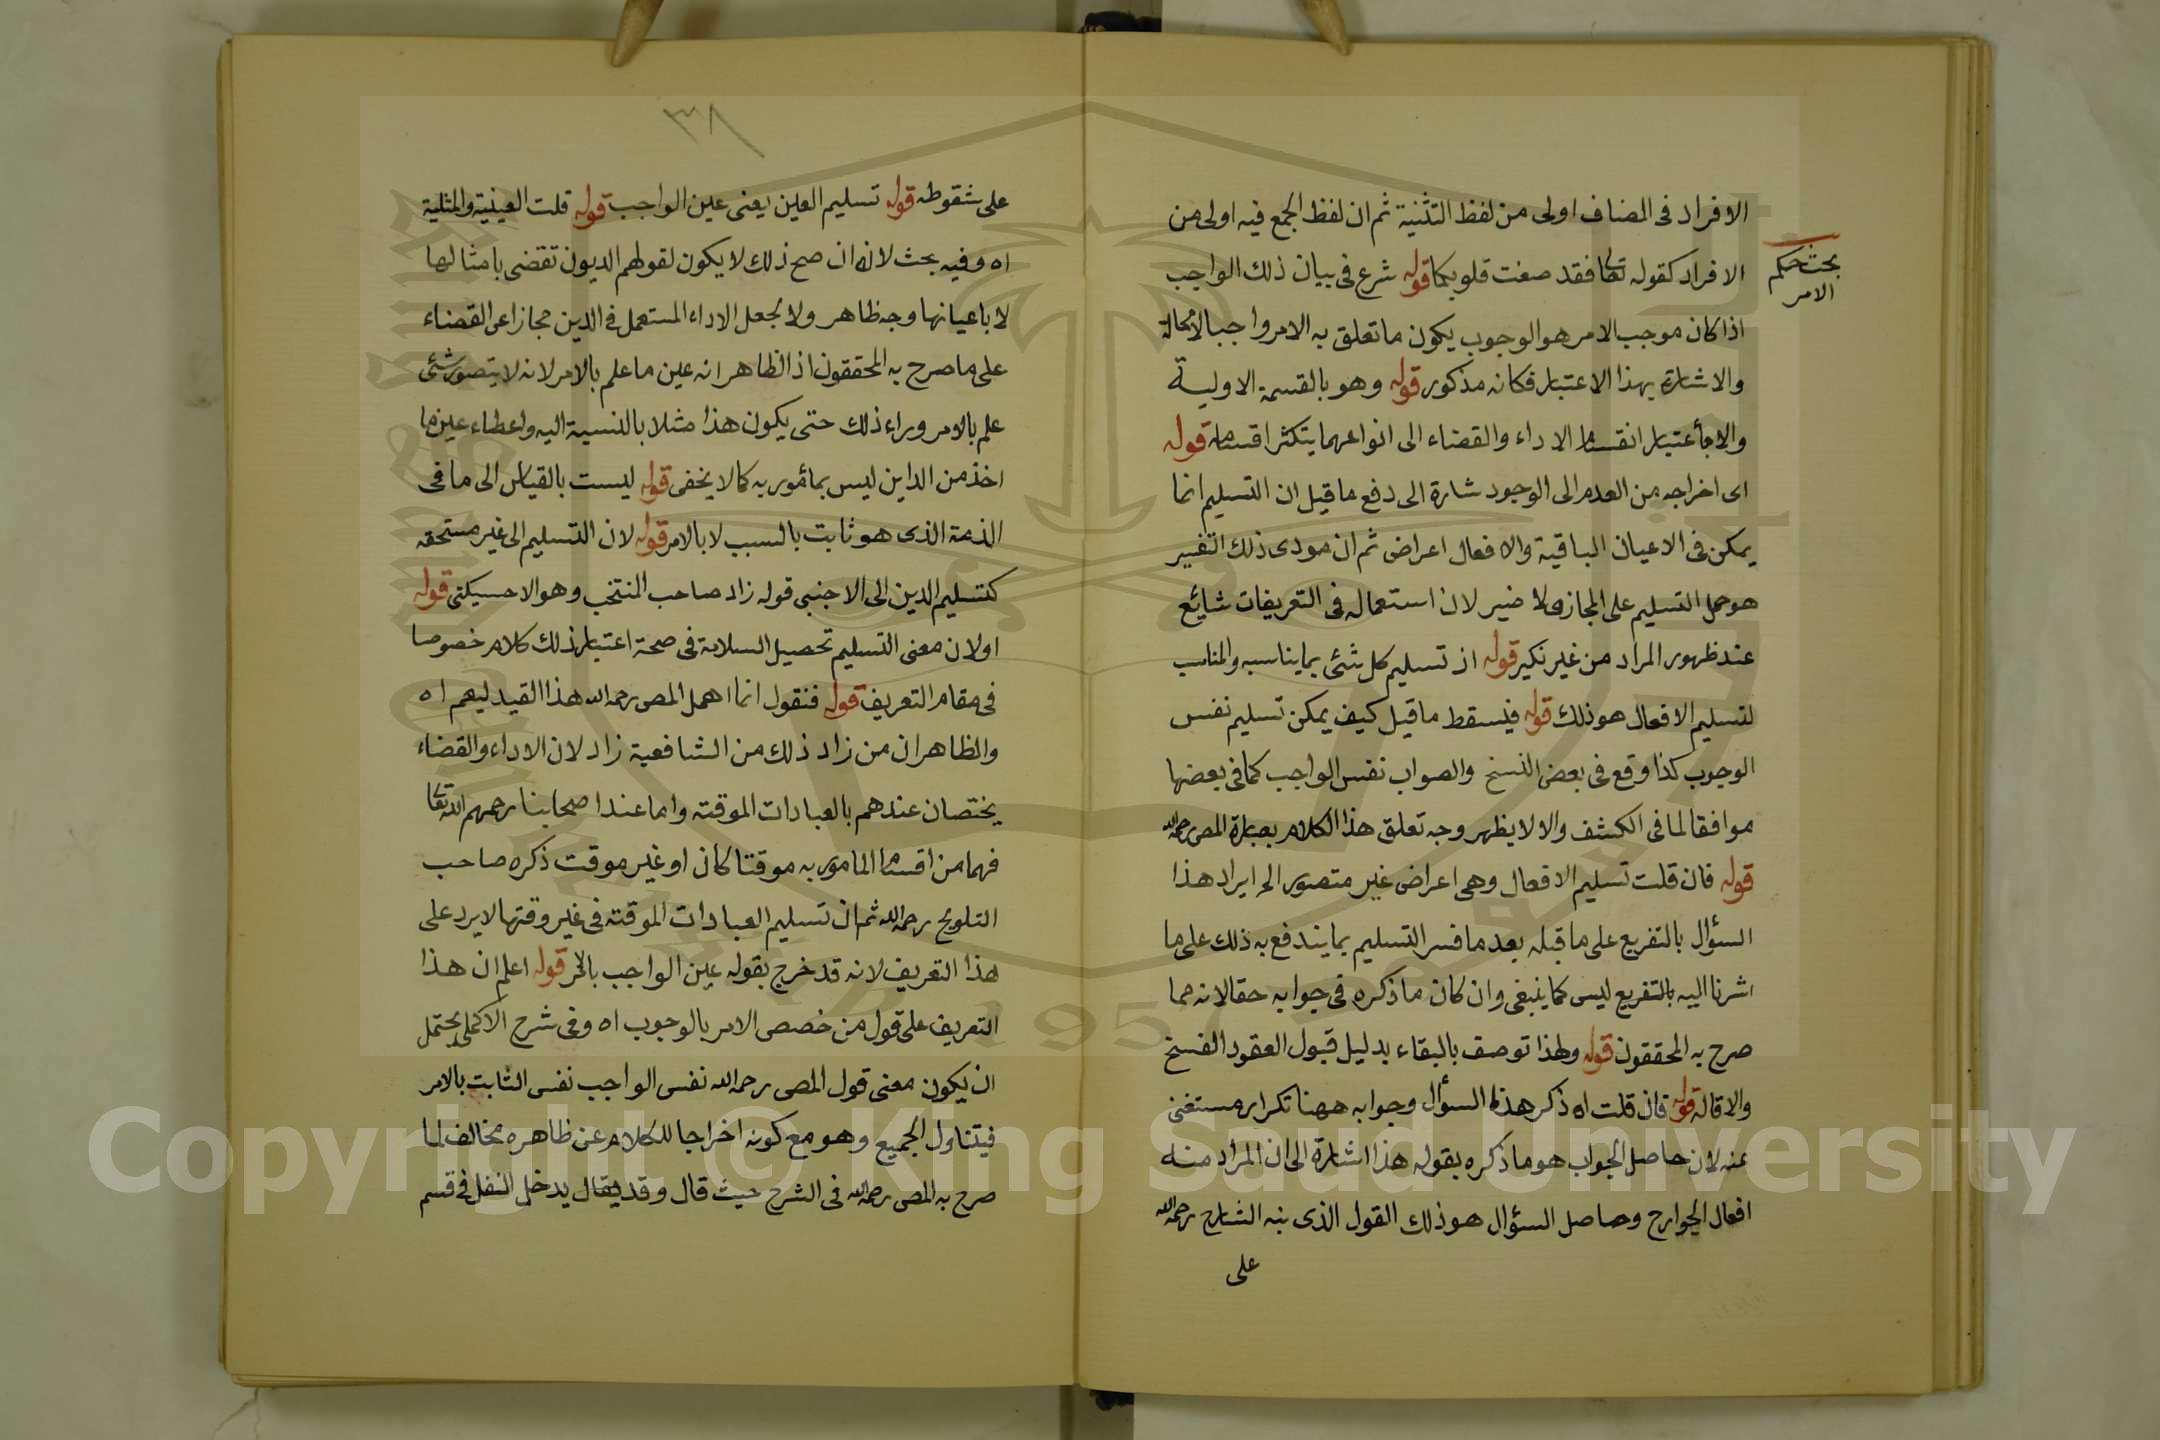 الافراد فى المضاف اولى من لفظ التثنية ثم ان لفظ الجمع فيه اولى من
بحث حكم
الامر
الافراد كقوله تعالى فقد صغت قلوبكما قوله شرع فى بيان ذلك الواجب
اذا كان موجب الامر هو الوجوب يكون ما تعلق به الامر واجبا لا محالة
والاشارة بهذا الاعتبار فكانه مذكور قوله وهو بالقسمة الاولية
والا فباعتبار انقسام الاداء والقضاء الى انواعهما يتكثر اقسامه قوله
اى اخراجه من العدم الى الوجود شارة الى دفع ما قيل ان التسليم انما
يمكن فى الاعيان الباقية والافعال اعراض ثم ان مودى ذلك التفسير
هو حمل التسليم على المجاز ولا ضير لان استعماله فى التعريفات شائع
عند ظهور المراد من غير نكير قوله اذ تسليم كل شئ بما يناسبه والمناسب
لتسليم الافعال هو ذلك قوله فيسقط ما قيل كيف يمكن تسليم نفس
الوجوب كذا وقع فى بعض النسخ والصواب نفس الواجب كما فى بعضها
موافقا لما فى الكشف والا لا يظهر وجه تعلق هذا الكلام بعبارة المص رحمه الله
قوله فان قلت تسليم الافعال وهى اعراض غير متصور الخ ايراد هذا
السؤال بالتفريع على ما قبله بعد ما فسر التسليم بما يندفع به ذلك على ما
اشرنا اليه بالتفريع ليس كما ينبغى وان كان ما ذكره فى جوابه حقا لانه مما
صرح به المحققون قوله ولهذا توصف بالبقاء بدليل قبول العقود الفسخ
والاقالة قوله فان قلت اه ذكر هذا السؤال وجوابه ههنا تكرار مستغنى
عنه لان حاصل الجواب هو ما ذكره بقوله هذا اشارة الى ان المراد منه
افعال الجوارح وحاصل السؤال هو ذلك القول الذى نبه الشارح رحمه الله
على
٣٨
على سقوطه قوله تسليم العين يعنى عين الواجب قوله قلت العينية والمثلية
اه وفيه بحث لانه ان صح ذلك لا يكون لقولهم الديون تقضى بامثالها
لا باعيانها وجه ظاهر ولا لجعل الاداء المستعمل فى الدين مجازا عن القضاء
على ما صرح به المحققون اذ الظاهر انه عين ما علم بالامر لانه لا يتصور شئ
علم بالامر وراء ذلك حتى يكون هذا مثلا بالنسبة اليه واعطاء عين ما
اخذ من الداين ليس بمأمور به كما لا يخفى قوله ليست بالقياس الى ما فى
الذمة الذى هو ثابت بالسبب لا بالامر قوله لان التسليم الى غير مستحقه
كتسليم الدين الى الاجنبى قوله زاد صاحب المنتخب وهو الاحسيكتى قوله
اولان معنى التسليم تحصيل السلامة فى صحة اعتبار ذلك كلام خصوصا
فى مقام التعريف قوله فنقول انما اهمل المص رحمه الله هذا القيد ليعم اه
والظاهر ان من زاد ذلك من الشافعية زاد لان الاداء والقضاء
يختصان عندهم بالعبادات الموقتة واما عند اصحابنا رحمهم الله تعا
فهما من اقسام المامور به موقتا كان او غير موقت ذكره صاحب
التلويح رحمه الله ثم ان تسليم العبادات الموقتة فى غير وقتها لا يرد على
هذا التعريف لانه قد خرج بقوله عين الواجب بالامر قوله اعلم ان هذا
التعريف على قول من خصص الامر بالوجوب اه وفى شرح الاكمل يحتمل
ان يكون معنى قول المص رحمه الله نفس الواجب نفس الثابت بالامر
فيتناول الجميع وهو مع كونه اخراجا للكلام عن ظاهره مخالف لما
صرح به المص رحمه الله فى الشرح حيث قال وقد يقال يدخل النفل فى قسم
Copyright © King Saud University
1957